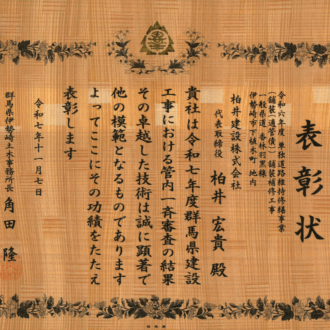 表彰状
令和六年度 単独道路維持修繕事業
(舗装)適管債)(舗装補修)工事
一般県道 香林羽黒線
伊勢崎市下植木町 地内
柏井建設株式会社
代表取締役 柏井 宏貴 殿
貴社は令和七年度群馬県建設
工事における管内一斉審査の結果
その卓越した技術は誠に顕著で
他の模範となるものであります
よってここにその功績をたたえ
表彰します
令和七年十一月七日
群馬県伊勢崎土木事務所長 角田 隆